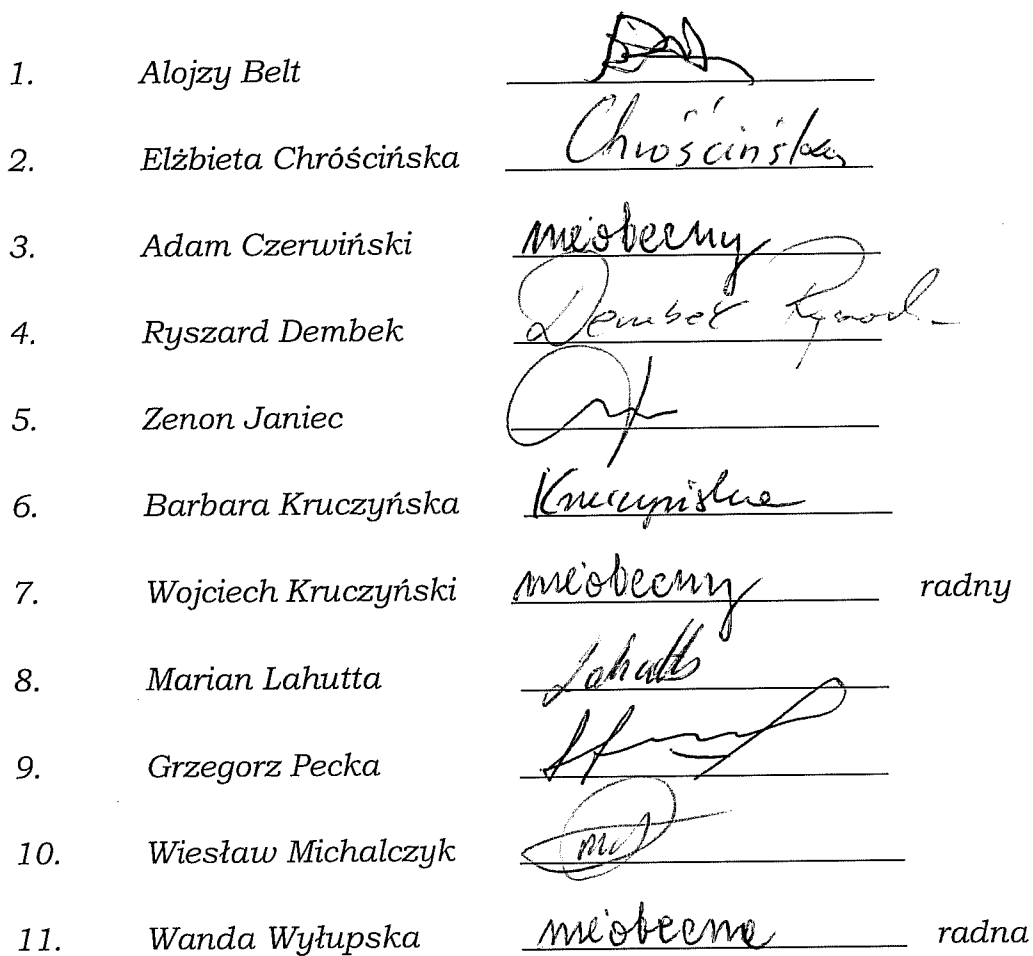 1. Alojzy Belt
2. Elżbieta Chróścińska Chróścińska
3. Adam Czerwiński nieobecny
4. Ryszard Dembek Dembek Ryszard
5. Zenon Janiec
6. Barbara Kruczyńska Kruczyńska
7. Wojciech Kruczyński nieobecny radny
8. Marian Lahutta Lahutta
9. Grzegorz Pecka
10. Wiesław Michalczyk
11. Wanda Wyłupska nieobecna radna